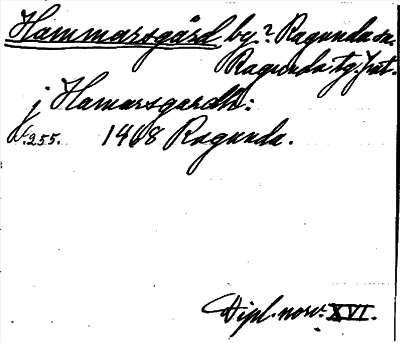 Hammarsgård by? Ragunda sn.
Ragunda tg. Jmt.
j Hamarsgardh:
N:255. 1468 Ragunda.
Dipl. norv. XVI.